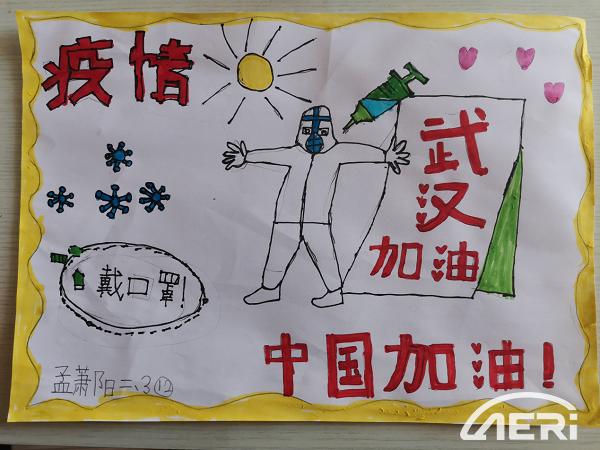 疫情
武
汉
加油
戴口罩!
中国加油!
孟萧阳二、3⑫
AERi